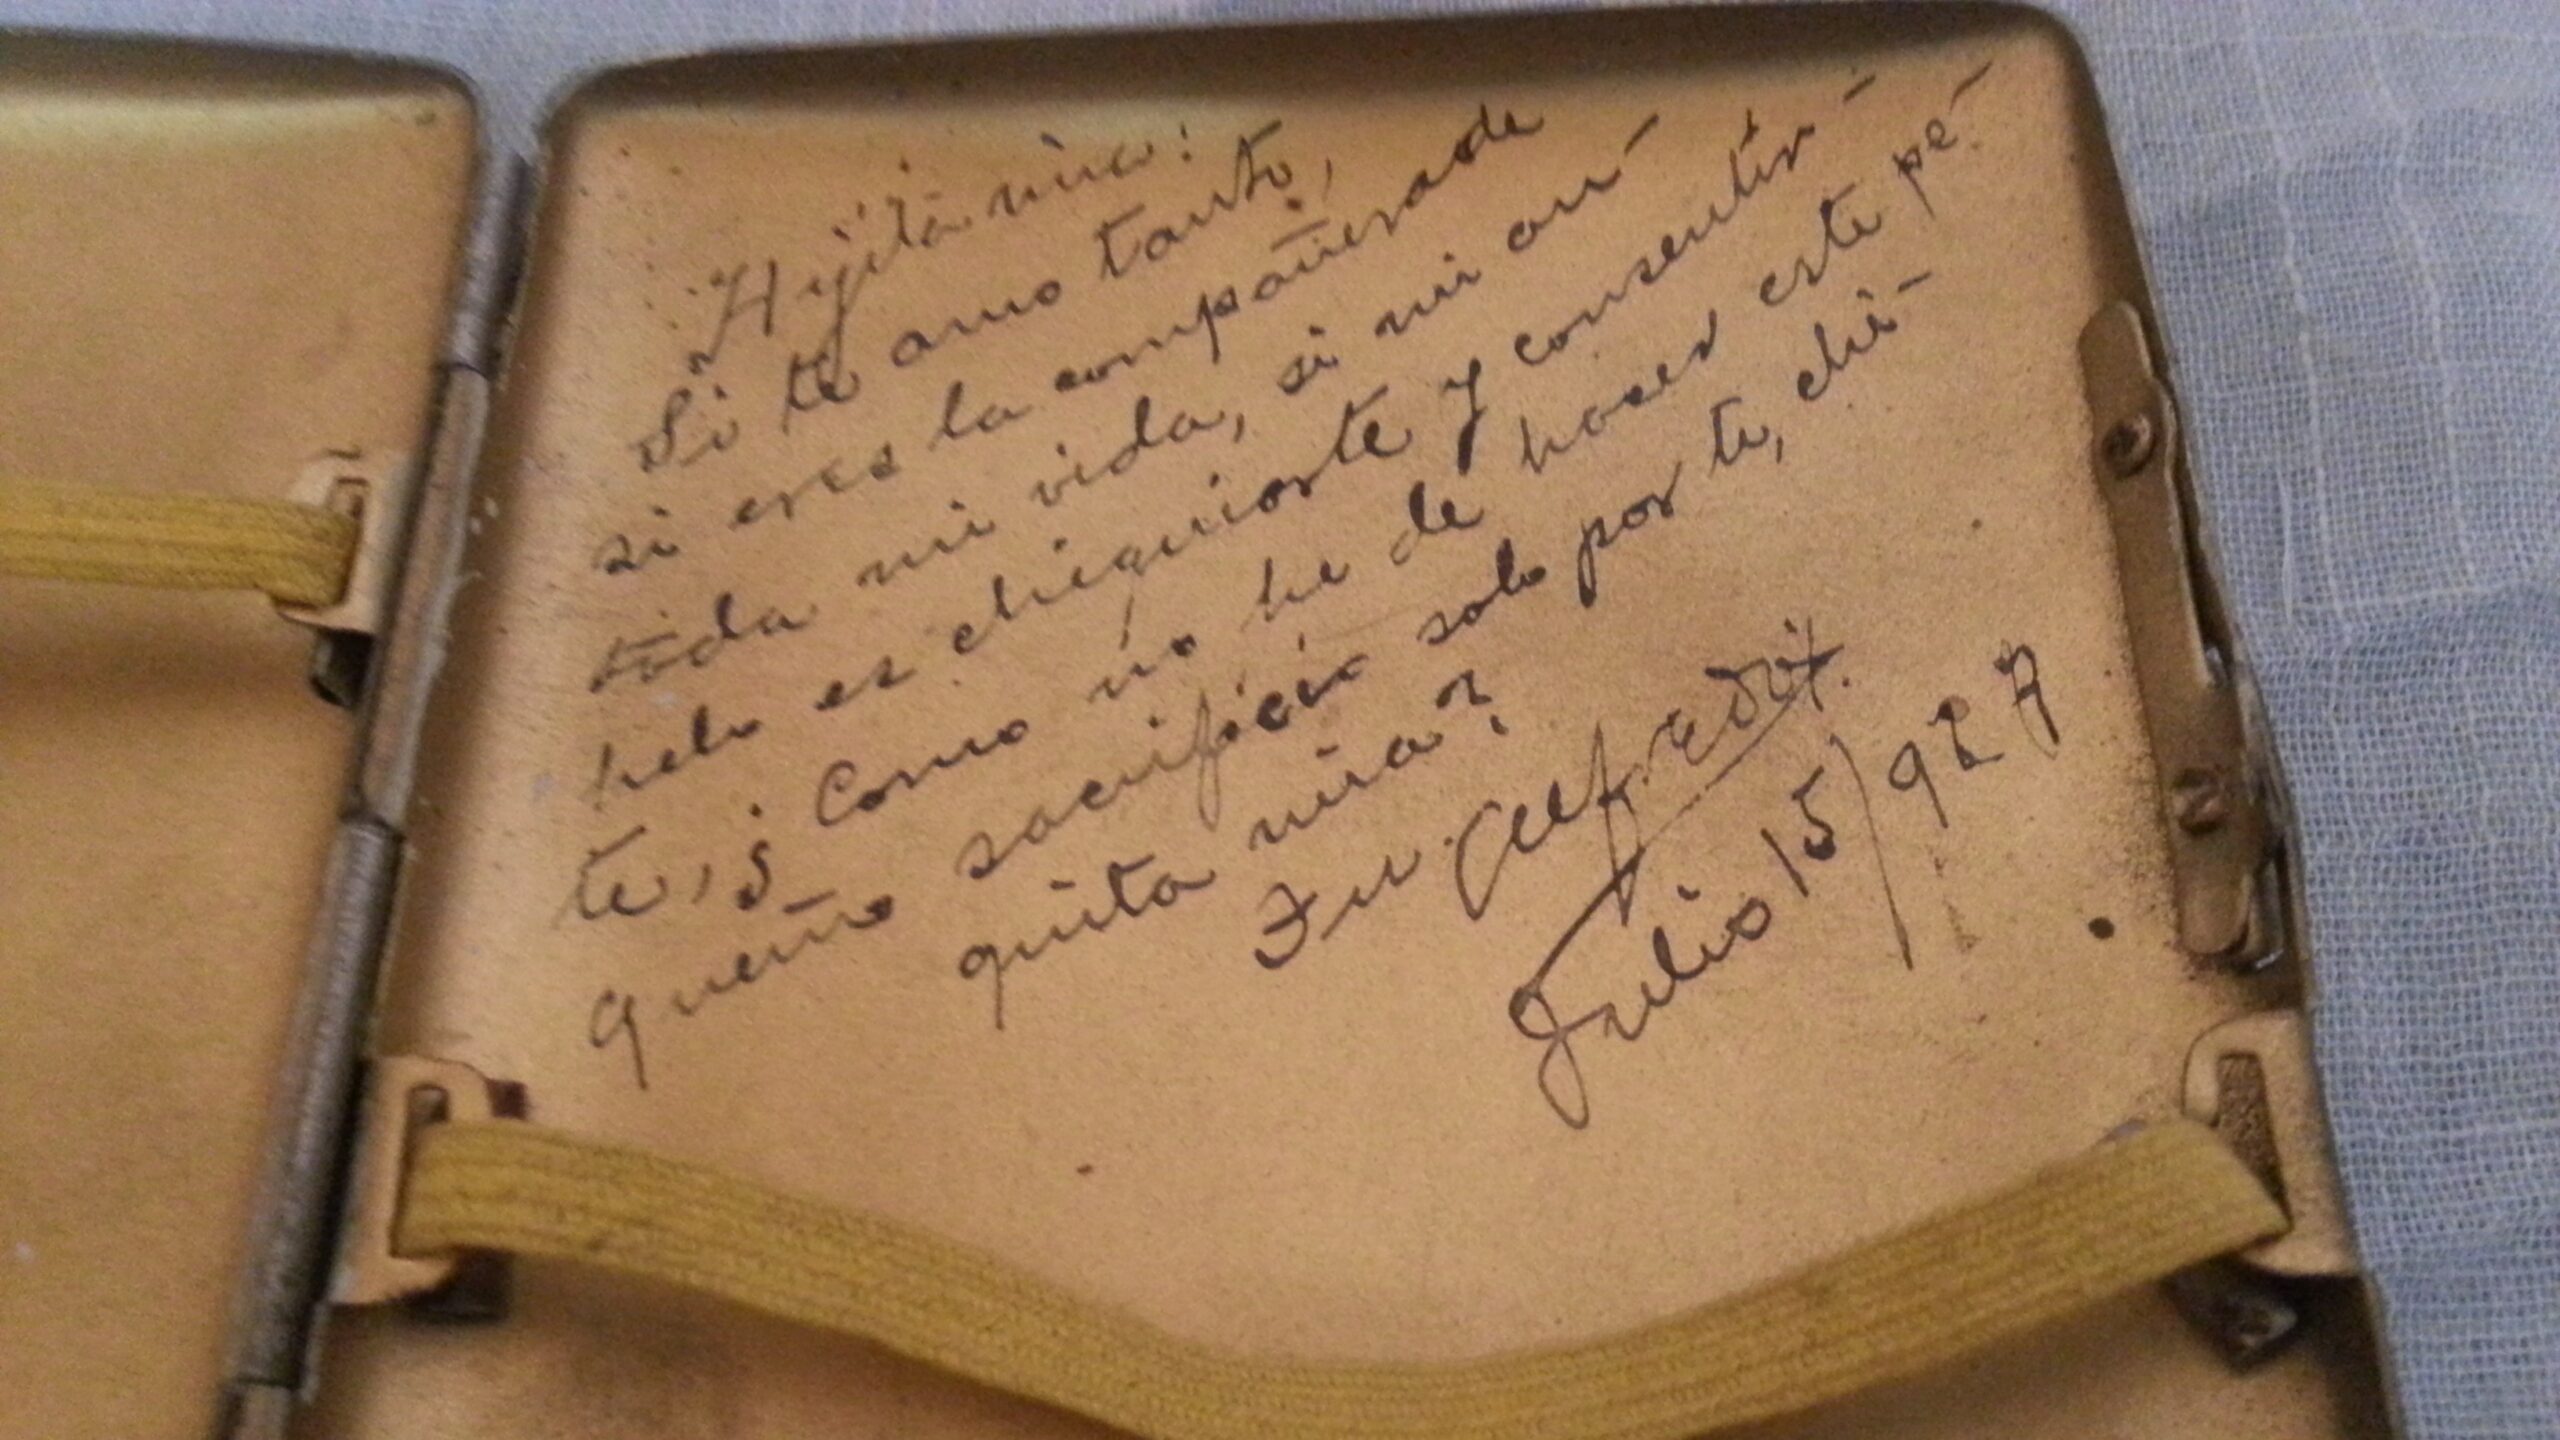 Hijita mia:
Si te amo tanto,
si eres la compañera de
toda mi vida, si mi an-
helo es chiquiarte y consentir-
te, ¿Como no he de hacer este pe-
queño sacrificio solo por ti, chi-
quita mia?
Tu Alfredito.
Julio 15/927